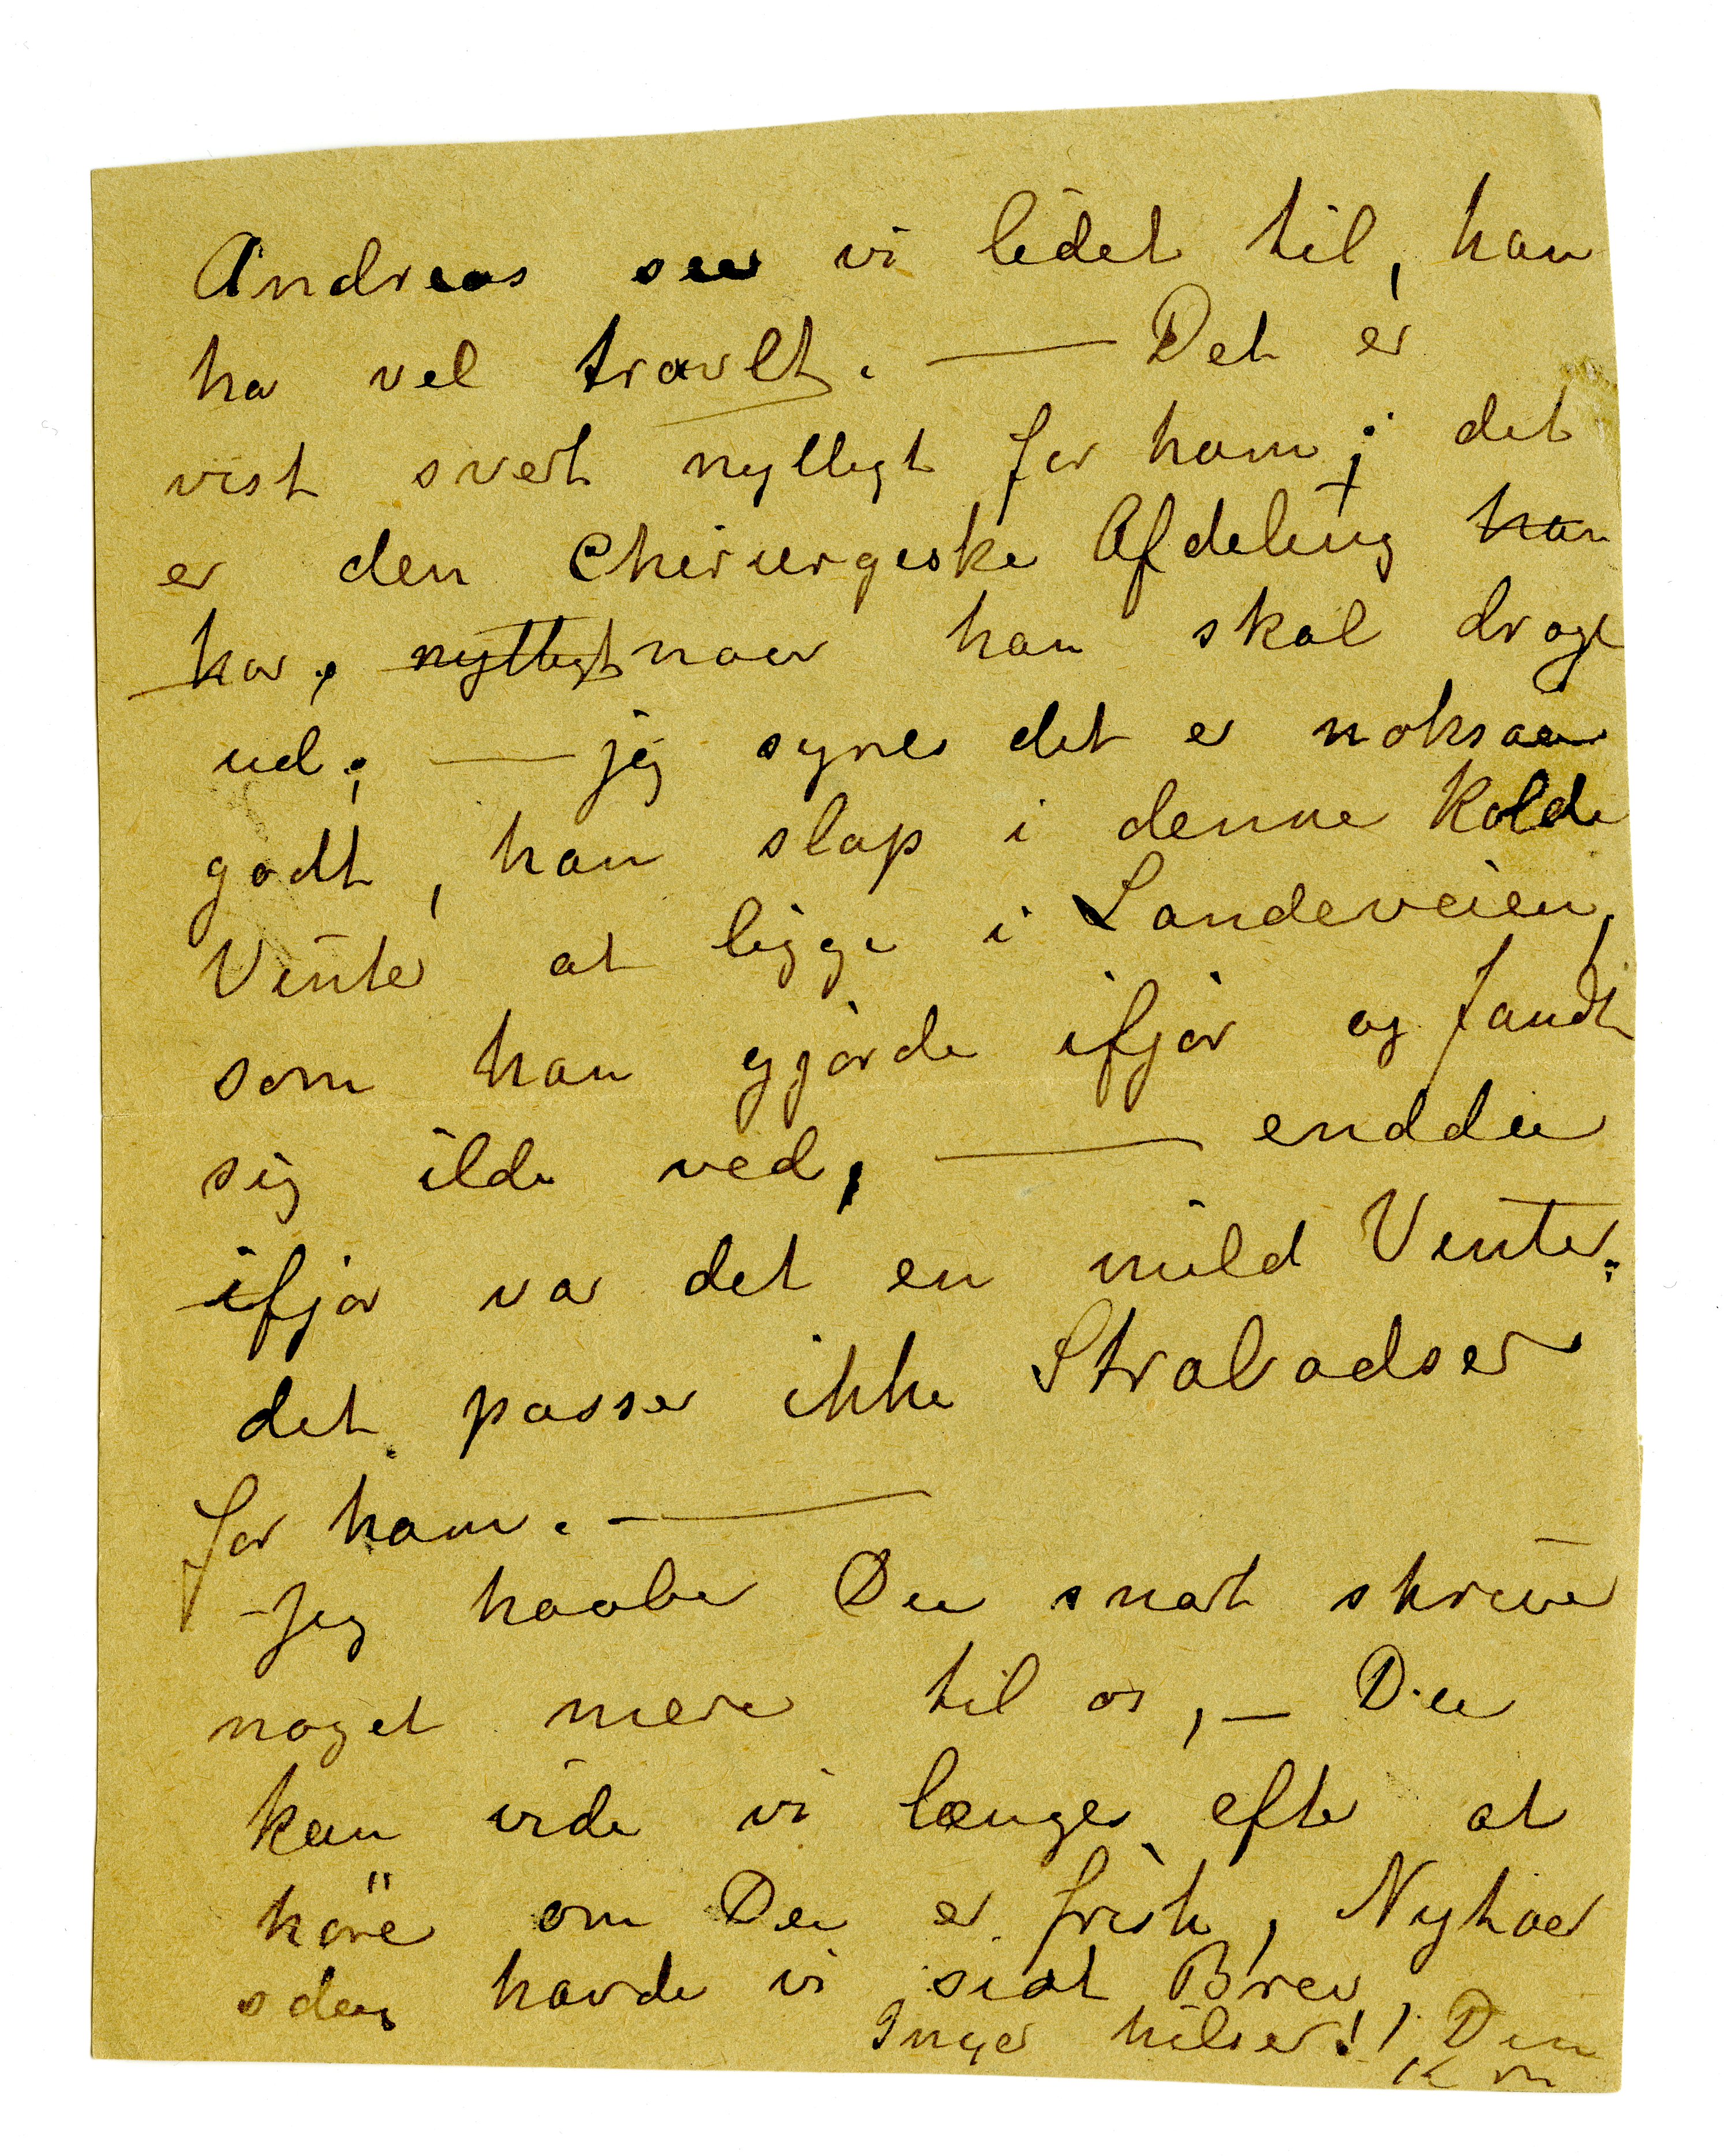 Andreas see vi lidet til, han
ha vel travlt. — Det er
vist svert nyttigt for ham; det
er den Chirurgiske Afdeling han
har, nyttigt naar han skal drage
ud; — jeg synes det er noksaa
godt, han slap i denne Kolde
Vinter at ligge i Landeveien,
som han gjorde ifjor og fandt
sig ilde ved, — enddu
ifjor var det en mild Vinter;
det passer ikke Strabadser
for ham. —
Jeg haaber Du snart skriver
noget mere til os, — Du
kan vide vi længes efter at
höre om Du er frisk, Nytaar
havde vi sidst Brev,
Inger hilser! Din
K M